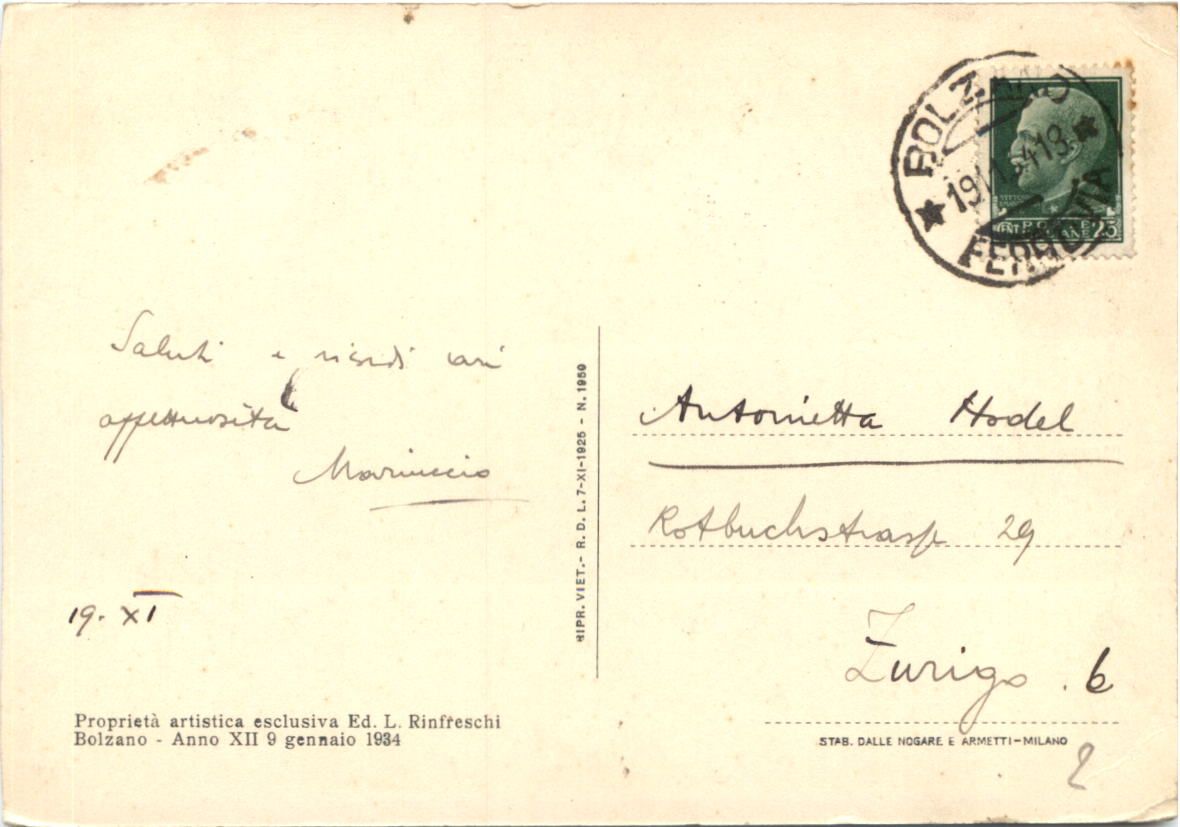 BOLZANO
19.11.34.13
FERROVIA
POSTE
ITALIANE
CENT 25
Saluti e ricordi cari
affettuosità
Mariuccia
19. XI
Proprietà artistica esclusiva Ed. L. Rinfreschi
Bolzano - Anno XII 9 gennaio 1934
RIPR. VIET. - R. D. L. 7-XI-1925 - N. 1950
Antonietta Hodel
Rotbuchstrasse 29
Zurigo . 6
STAB. DALLE NOGARE E ARMETTI-MILANO
2